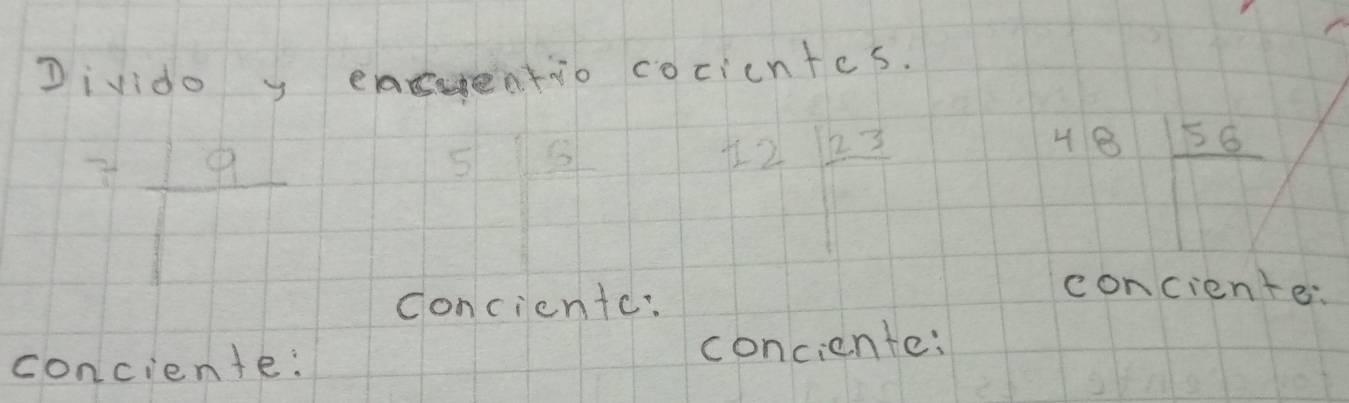 Divido y encuentro cocientes.
7 9 5 6 12 23 48 56
conciente: conciente: conciente: conciente: